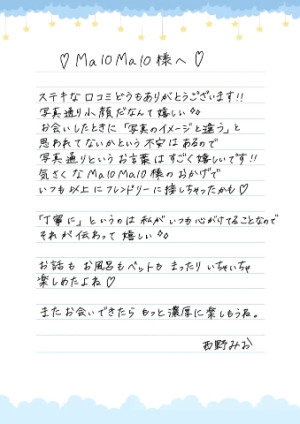 ♡ MaloMalo様へ ♡
ステキな口コミどうもありがとうございます!!
写真通り小顔だなんて嬉しい◇◇
お会いしたときに「写真のイメージと違う」と
思われてないかという不安はあるので
写真通りというお言葉はすごく嬉しいです!!
気さくなMaloMalo様のおかげで
いつも以上にフレンドリーに接しちゃったかも♡
「丁寧に」というのは私がいつも心がけてることなので
それが伝わって嬉しい◇◇
お話もお風呂もベットもまったりいちゃいちゃ
楽しめたよね♡
またお会いできたらもっと濃厚に楽しもうね。
西野みお